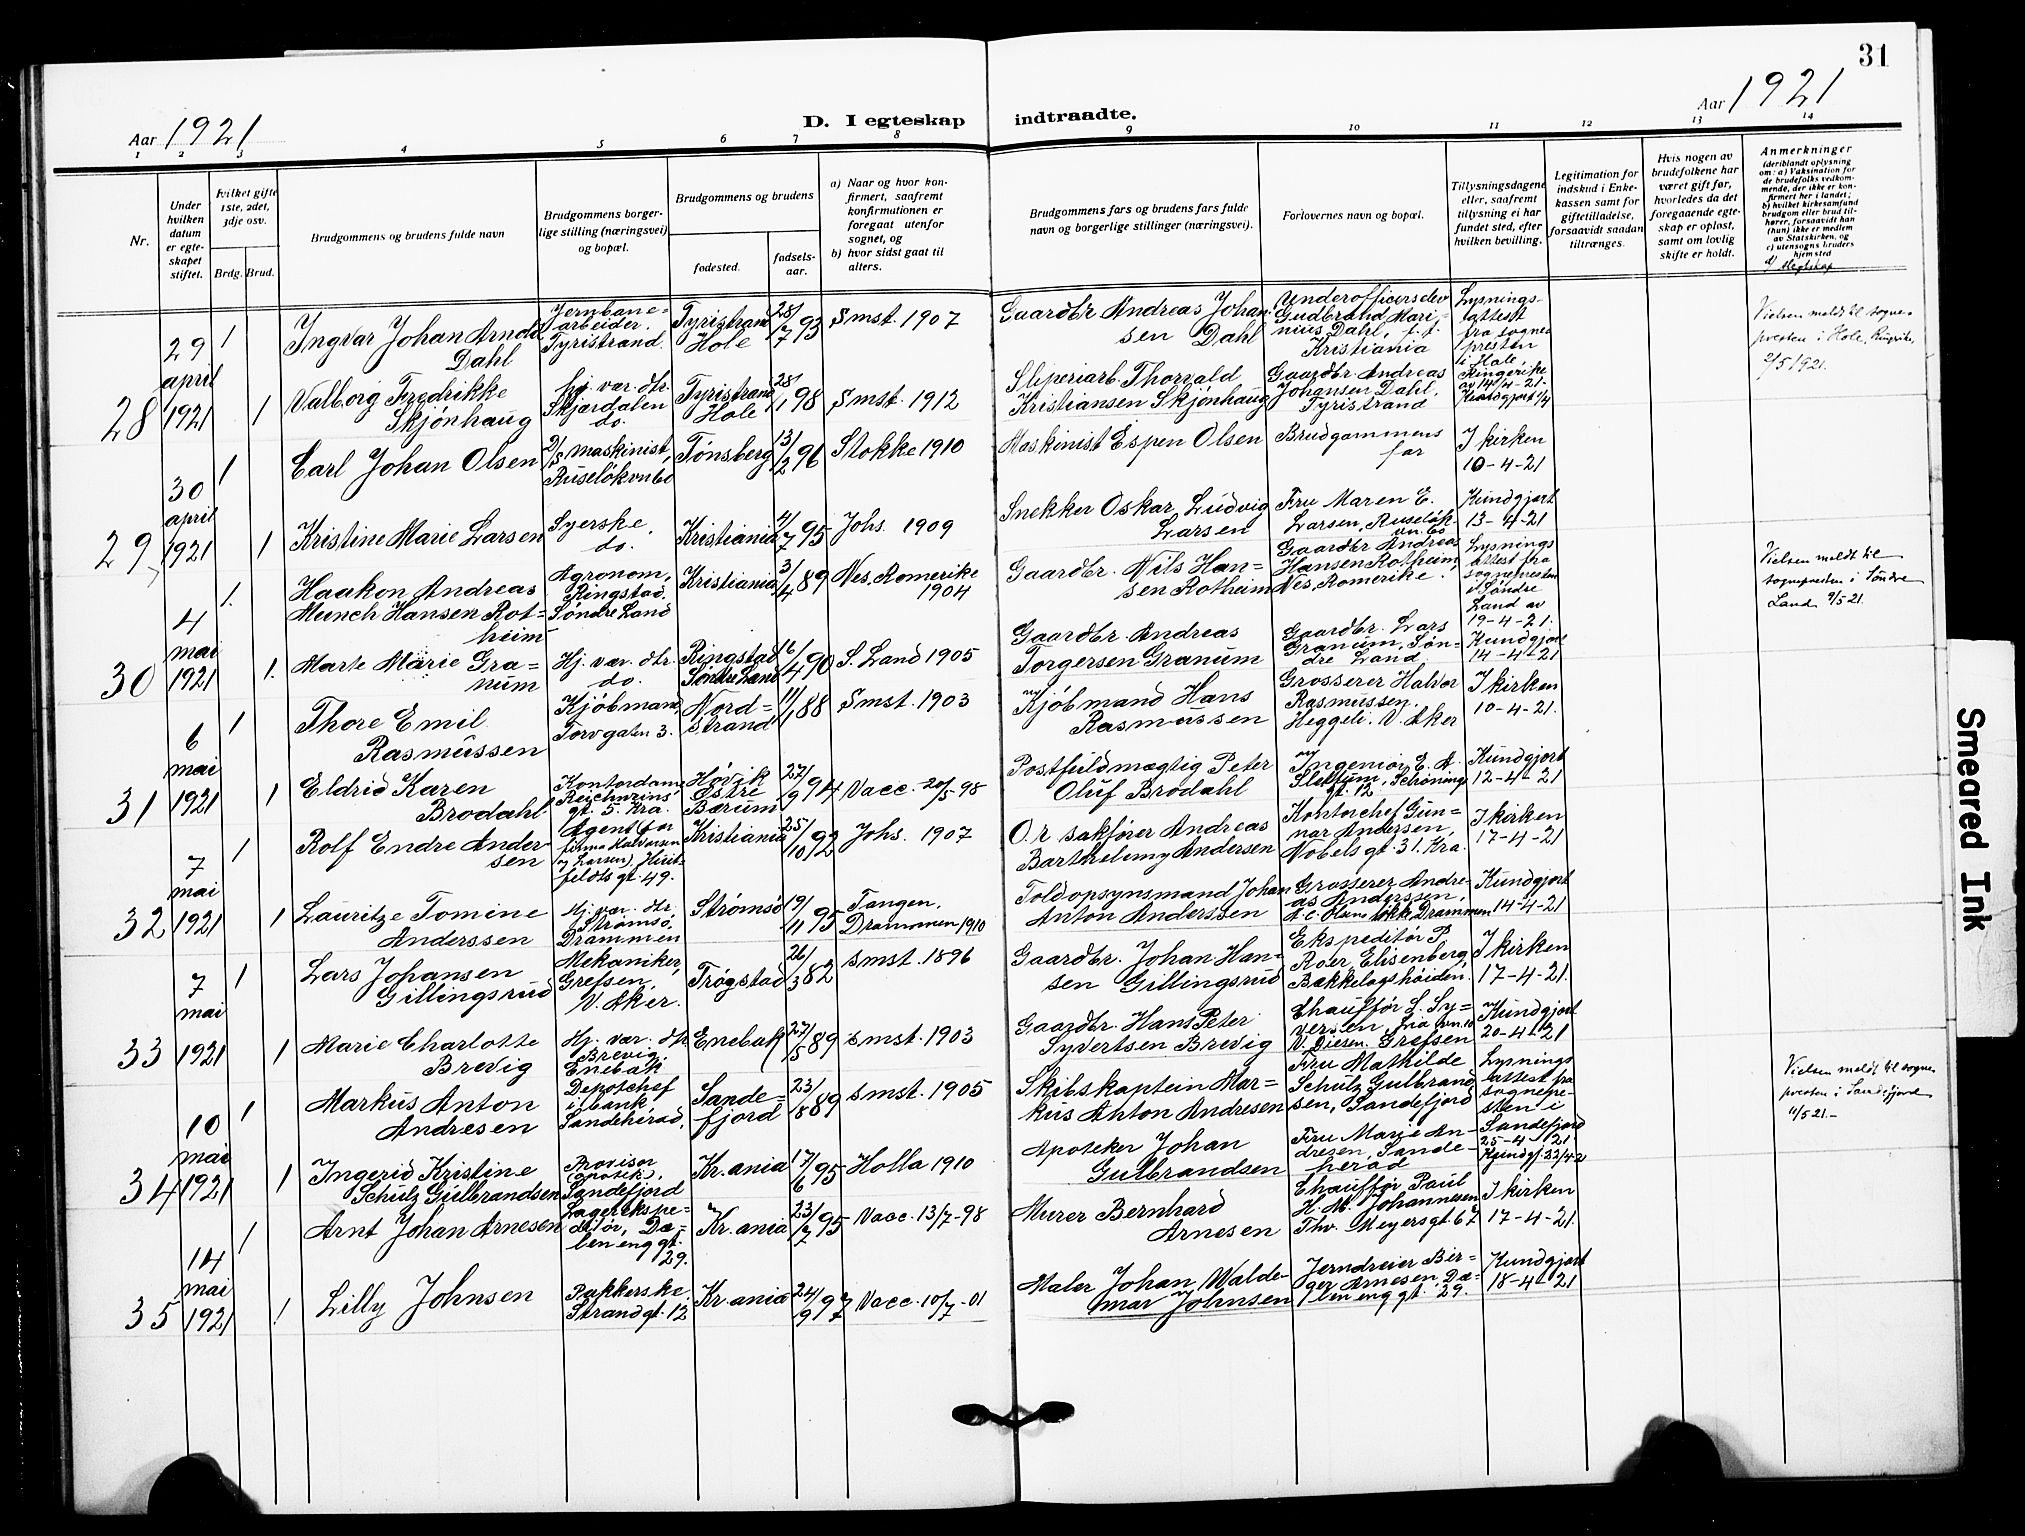 31
Aar 1921
D. I egteskap
indtraadte.
Aar 1921
1 2 3 4 5 6 7 8 9 10 11 12 13 14
Nr.
Under
hvilken
datum
er egte-
skapet
stiftet.
Hvilket gifte
1ste, 2det,
3dje osv.
Brdg. Brud.
Brudgommens og brudens fulde navn
Brudgommens borger-
lige stilling (næringsvei)
og bopæl.
Brudgommens og brudens
fødested.
fødsels-
aar.
a) Naar og hvor kon-
firmert, saafremt
konfirmationen er
foregaat utenfor
sognet, og
b) hvor sidst gaat til
alters.
Brudgommens fars og brudens fars fulde
navn og borgerlige stillinger (næringsvei).
Forlovernes navn og bopæl.
Tillysningsdagene
eller, saafremt
tillysning ei har
fundet sted, efter
hvilken bevilling.
Legitimation for
indskud i Enke-
kassen samt for
giftetilladelse,
forsaavidt saadan
tiltrænges.
Hvis nogen av
brudefolkene har
været gift før,
hvorledes da det
foregaaende egte-
skap er opløst,
samt om lovlig
skifte er holdt.
Anmerkninger
(deriblandt oplysning
om: a) Vaksination for
de brudefolks vedkom-
mende, der ikke er kon-
firmert her i landet;
b) hvilket kirkesamfund
brudgom eller brud til-
hører, forsaavidt han
(hun) ikke er medlem
av Statskirken, og
c) utensogns bruders
hjemsted
28
29
april
1921
1
Ingvar Johan Arnold
Dahl
Jernbane-
arbeider.
Tyristrand.
Tyristrand
Hole
28/7 93
Smst. 1907
Gaardbr Andreas Johan-
sen Dahl
Underofficerselev
Gudbrand Mari-
nius Dahl, f. t.
Kristiania
Lysnings-
attest
fra sogne
presten
i Hole,
Ringerike
av 14/4-21.
Vielsen meldt til sogne-
presten i Hole, Ringerike,
2/5 1921.
1
Valborg Fredrikke
Skjønhaug
Hj. vær. dtr.
Skjærdalen
do.
Tyristrand
Hole
28/1 98
Smst. 1912
Sliperiarb. Thorvald
Kristiansen Skjønhaug
Gaardbr. Andreas
Johansen Dahl,
Tyristrand
29
30
april
1921
1
Carl Johan Olsen
2/s maskinist,
Ruseløkvn 60
Tønsberg
13/2 96
Stokke 1910
Maskinist Espen Olsen
Brudgommens
far
I kirken
10-4-21
1
Kristine Marie Larsen
Syerske,
do.
Kristiania
4/7 95
Johs. 1909
Snekker Oskar Ludvig
Larsen
Fru Maren E.
Larsen, Ruseløk-
vn. 60
Kundgjort
13-4-21
30
4
mai
1921
1.
Haakon Andreas
Munch Hansen Rot-
heim
Agronom,
Ringstad.
Søndre Land
Kristiania
3/4 89
Nes, Romerike
1904
Gaardbr. Nils Han-
sen Rotheim
Gaardbr Andreas
Hansen Rotheim,
Nes, Romerike.
Lysnings
attest fra
sognepresten
i Søndre
Land av
19-4-21.
Vielsen meldt til
sognepresten i Søndre
Land 9/5 21.
1.
Marte Marie Gra-
num
Hj. vær. dtr.
do.
Ringstad
Søndre Land
6/4 90
S. Land 1905
Gaardbr. Andreas
Torgersen Granum
Gaardbr. Lars
Granum, Søn-
dre Land.
Kundgjort
14-4-21
31
6
mai
1921
1
Thore Emil
Rasmussen
Kjøbmand,
Torvgaten 3.
Nord-
strand
11/1 88
Smst. 1903
Kjøbmand Hans
Rasmussen
Grosserer Halvor
Rasmussen.
Heggeli. V. Aker
I kirken
10-4-21.
1
Eldrid Karen
Brodahl
Kontordame
Reichweins
gt. 5. Kra.
Høvik
Østre
Bærum
27/9 94
Vacc. 20/5-98
Postfuldmægtig Peter
Oluf Brodahl
Ingeniør E. A.
Slettum, Schøning
gt. 12
Kundgjort
12-4-21
32
7
mai
1921
1
Rolf Endre Ander
sen
Agent (for
firma Halvorsen
og Larsen), Huit-
feldts gt. 49.
Kristiania
25/10 92
Johs. 1907
O.r. sakfører Andreas
Barthelemy Andersen
Kontorchef Gun-
nar Andersen,
Nobels gt. 31. Kra.
I kirken
17-4-21
1
Lauritze Tomine
Anderssen
Hj. vær. dtr.
Strømsø,
Drammen
Strømsø
19/11 95
Tangen,
Drammen 1910
Toldopsynsmand Johan
Anton Anderssen
Grosserer Andre-
as Anderssen,
A. C. Olsens løkke, Drammen
Kundgjort
14-4-21
33
7
mai
1921
1
Lars Johansen
Gillingsrud
Mekaniker,
Grefsen,
V. Aker.
Trøgstad
26/3 82
smst. 1896
Gaardbr. Johan Han-
sen Gillingsrud
Ekspeditør P.
Roer, Elisenberg,
Bækkelagshøiden.
I kirken
17-4-21.
1
Marie Charlotte
Brevig
Hj. vær. dtr
Brevig.
Enebak
Enebak
27/5 89
smst. 1903
Gaardbr. Hans Peter
Syvertsen Brevig
Chauffør L. Sy-
versen,
Grefsen
Kundgjort
20-4-21
34
10
mai
1921
1
Markus Anton
Andresen
Depotchef
i bank
Sandeherad,
Sande-
fjord
23/1 889
smst. 1905
Skibskaptein Mar-
kus Anton Andresen
Fru Mathilde
Schulz Gulbrand
sen, Sandefjord
Lysnings
attest fra
sognepre-
sten i
Sandefjord
25-4-21
Vielsen meldt til sogne
presten i Sandefjord
11/5 21.-
1
Ingerid Kristine
Schulz Gulbrandsen
Provisor
(apotek),
Sandefjord
Kr.ania
17/6 95
Holla 1910
Apoteker Johan
Gulbrandsen
Fru Marie An-
dresen, Sande-
herad
35
14
mai
1921
1
Arnt Johan Arnesen
Lagerekspe-
ditør, Dæ-
leneng gt.
29.
Kr.ania
23/7 95
Vacc. 13/7-98
Murer Bernhard
Arnesen
Chauffør Paul
H. M. Johannesen
Thv. Meyersgt. 67
I kirken
17-4-21.
1
Lilly Johnsen
Pakkerske.
Strandgt. 12
Kr.ania
24/9 97
Vacc. 10/7-01
Maler Johan Walde-
mar Johnsen
Jerndreier Bir-
ger Arnesen, Dæ-
leneng gt. 29.
Kundgjort
18-4-21
Smeared Ink